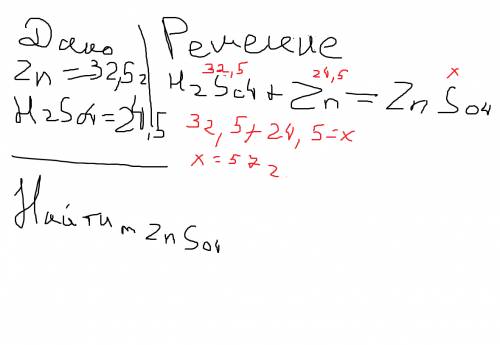 Дано
Zn = 32,5г
H2So4 = 24,5
Найти m ZnSo4
Решение
32,5 24,5 x
H2So4 + Zn = ZnSo4
32,5 + 24,5 = x
x = 57г